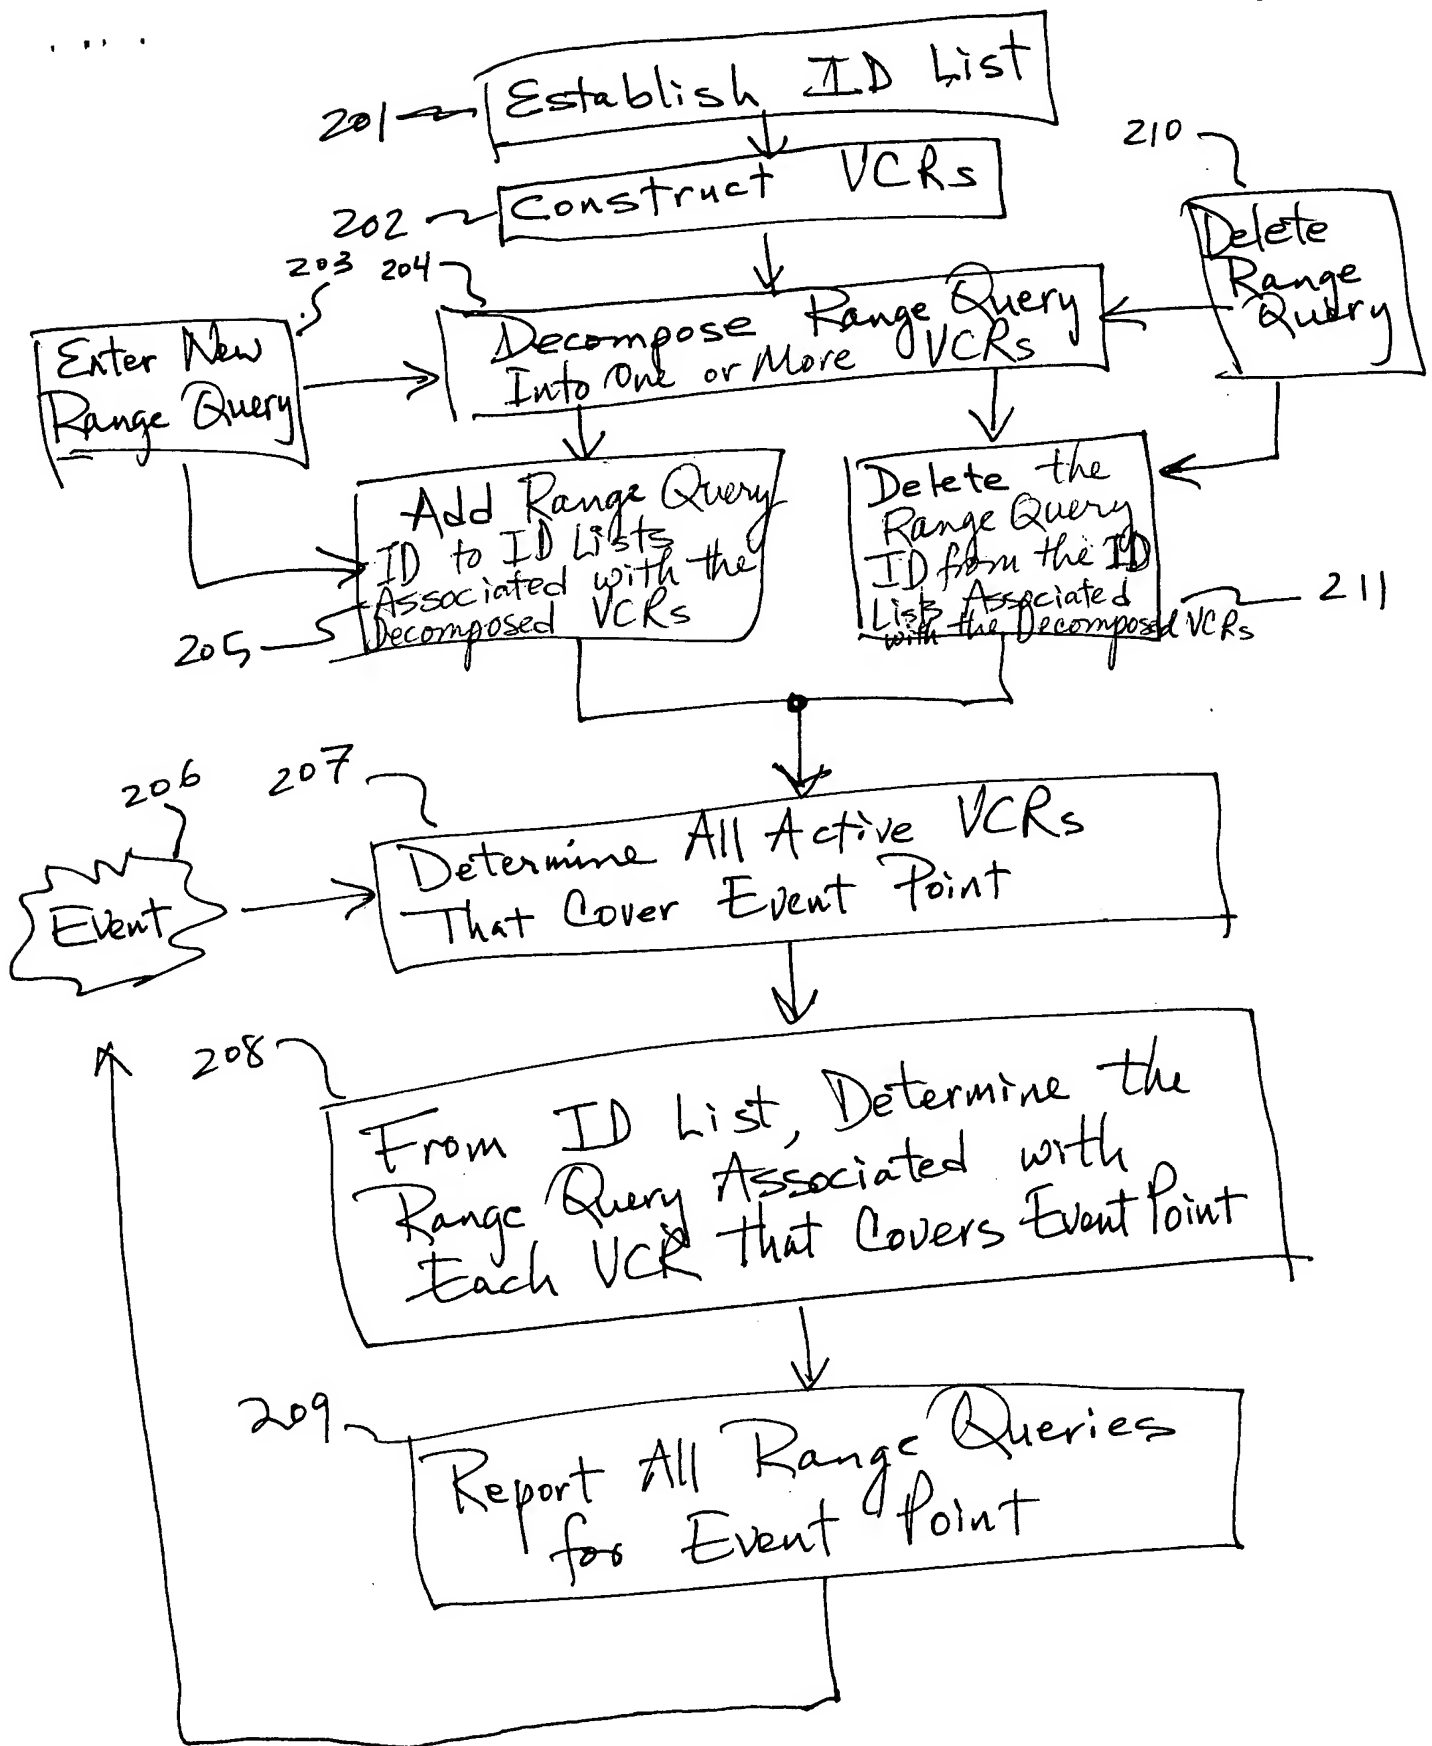 Establish ID List
201
210
Construct VCRs
202
Delete
Range
Query
203
204
Decompose Range Query
Into One or More VCRs
Enter New
Range Query
Add Range Query
ID to ID Lists
Associated with the
Decomposed VCRs
205
Delete the
Range Query
ID from the ID
Lists Associated
with the Decomposed VCRs
211
206
207
Event
Determine All Active VCRs
That Cover Event Point
208
From ID List, Determine the
Range Query Associated with
Each VCR that Covers Event Point
209
Report All Range Queries
for Event Point